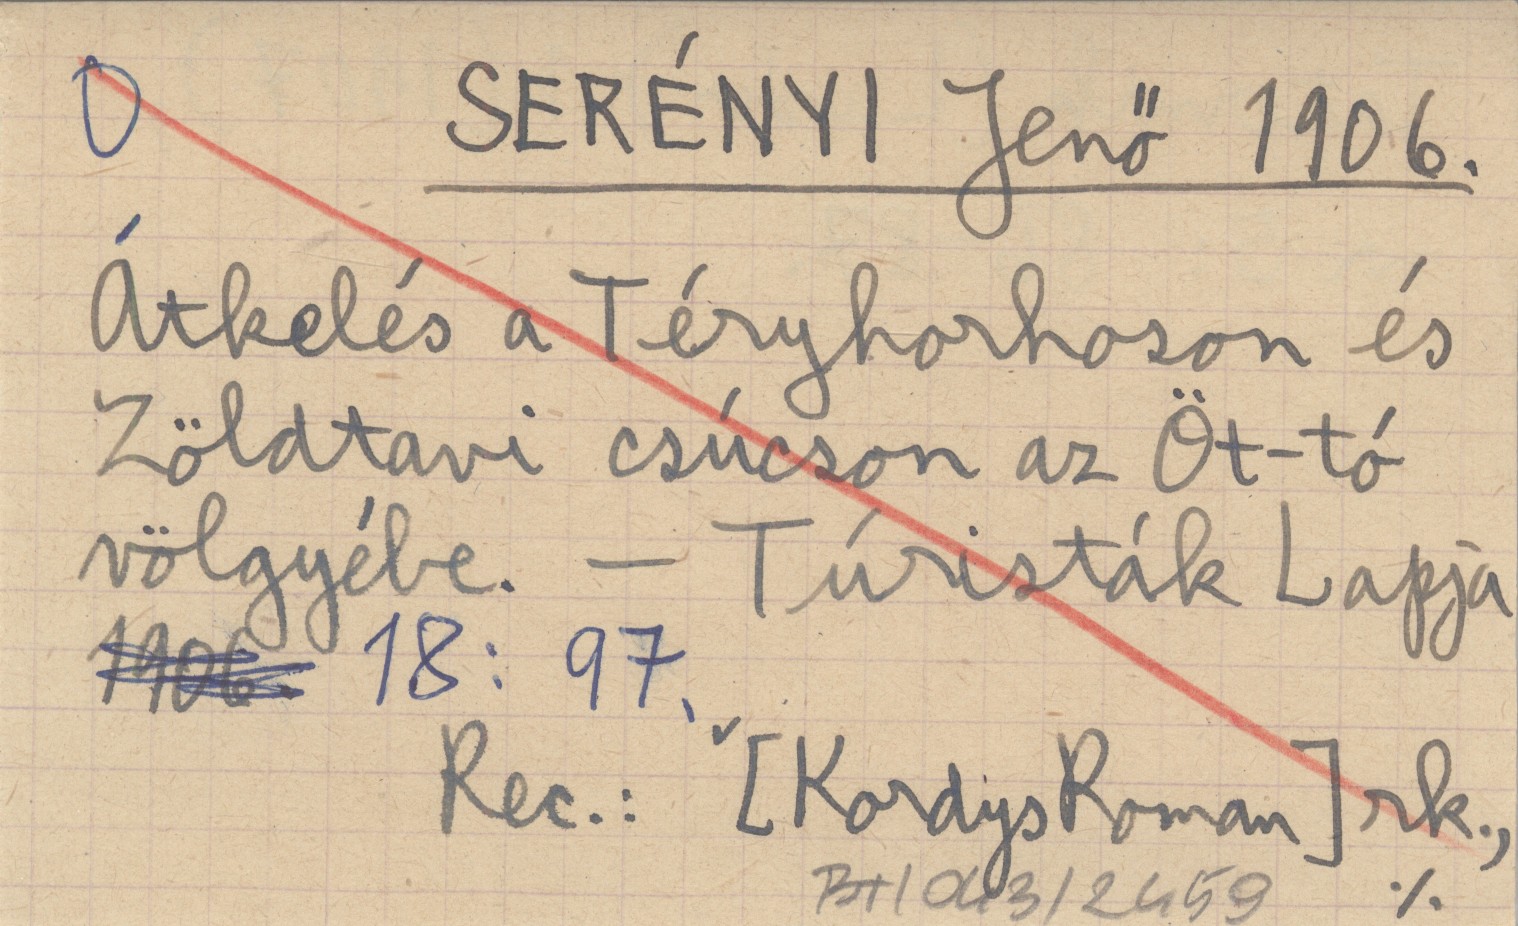 0 SERÉNYI Jenő 1906.
Átkelés a Téryhorhoson és
Zöldtavi csúcson az Öt-tó
völgyébe. — Túristák Lapja
1906. 18: 97.
Rec.: [Kordys Roman] rk.,
BH/043/2459 ./.